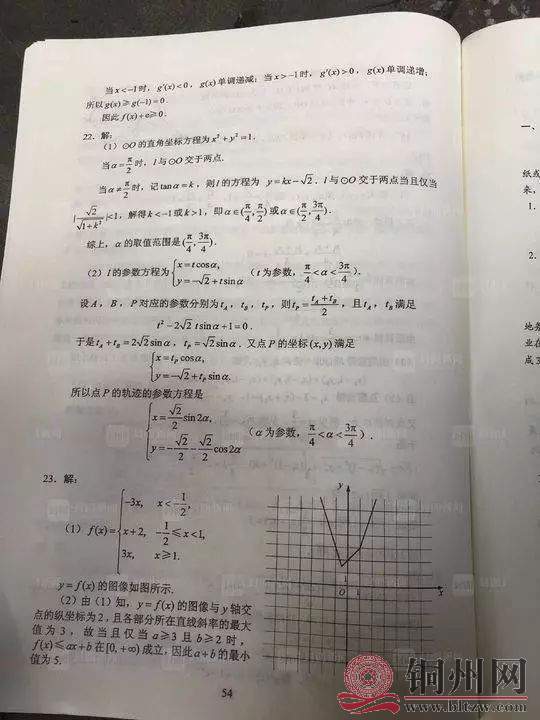 当x<-1时，g'(x)<0，g(x)单调递减；当x>-1时，g'(x)>0，g(x)单调递增；
所以g(x)≥g(-1)=0.
因此f(x)+e≥0.
22. 解：
（1）⊙O的直角坐标方程为x²+y²=1.
当α=π/2时，l与⊙O交于两点.
当α≠π/2时，记tanα=k，则l的方程为 y=kx-√2. l与⊙O交于两点当且仅当
|√2/√(1+k²)|<1，解得k<-1或k>1，即α∈(π/4, π/2)或α∈(π/2, 3π/4).
综上，α的取值范围是(π/4, 3π/4).
（2）l的参数方程为{x=tcosα, y=-√2+tsinα （t为参数，π/4<α<3π/4）.
设A，B，P对应的参数分别为t_A，t_B，t_P，则t_P=(t_A+t_B)/2，且t_A，t_B满足
t²-2√2 tsinα+1=0.
于是t_A+t_B=2√2sinα，t_P=√2sinα. 又点P的坐标(x,y)满足
{x=t_P cosα,
y=-√2+t_P sinα.
所以点P的轨迹的参数方程是
{x=√2/2 sin2α,
y=-√2/2-√2/2 cos2α （α为参数，π/4<α<3π/4）.
23. 解：
（1）f(x)={-3x, x<-1/2,
x+2, -1/2≤x<1,
3x, x≥1.
y
O 1 x
1
y=f(x)的图像如图所示.
（2）由（1）知，y=f(x)的图像与y轴交
点的纵坐标为2，且各部分所在直线斜率的最大
值为3，故当且仅当a≥3且b≥2时，
f(x)≤ax+b在[0,+∞)成立，因此a+b的最小
值为5.
54
一、
纸或
来，
1.
2.
地务
业在
成3
铜州网
www.bltzw.com